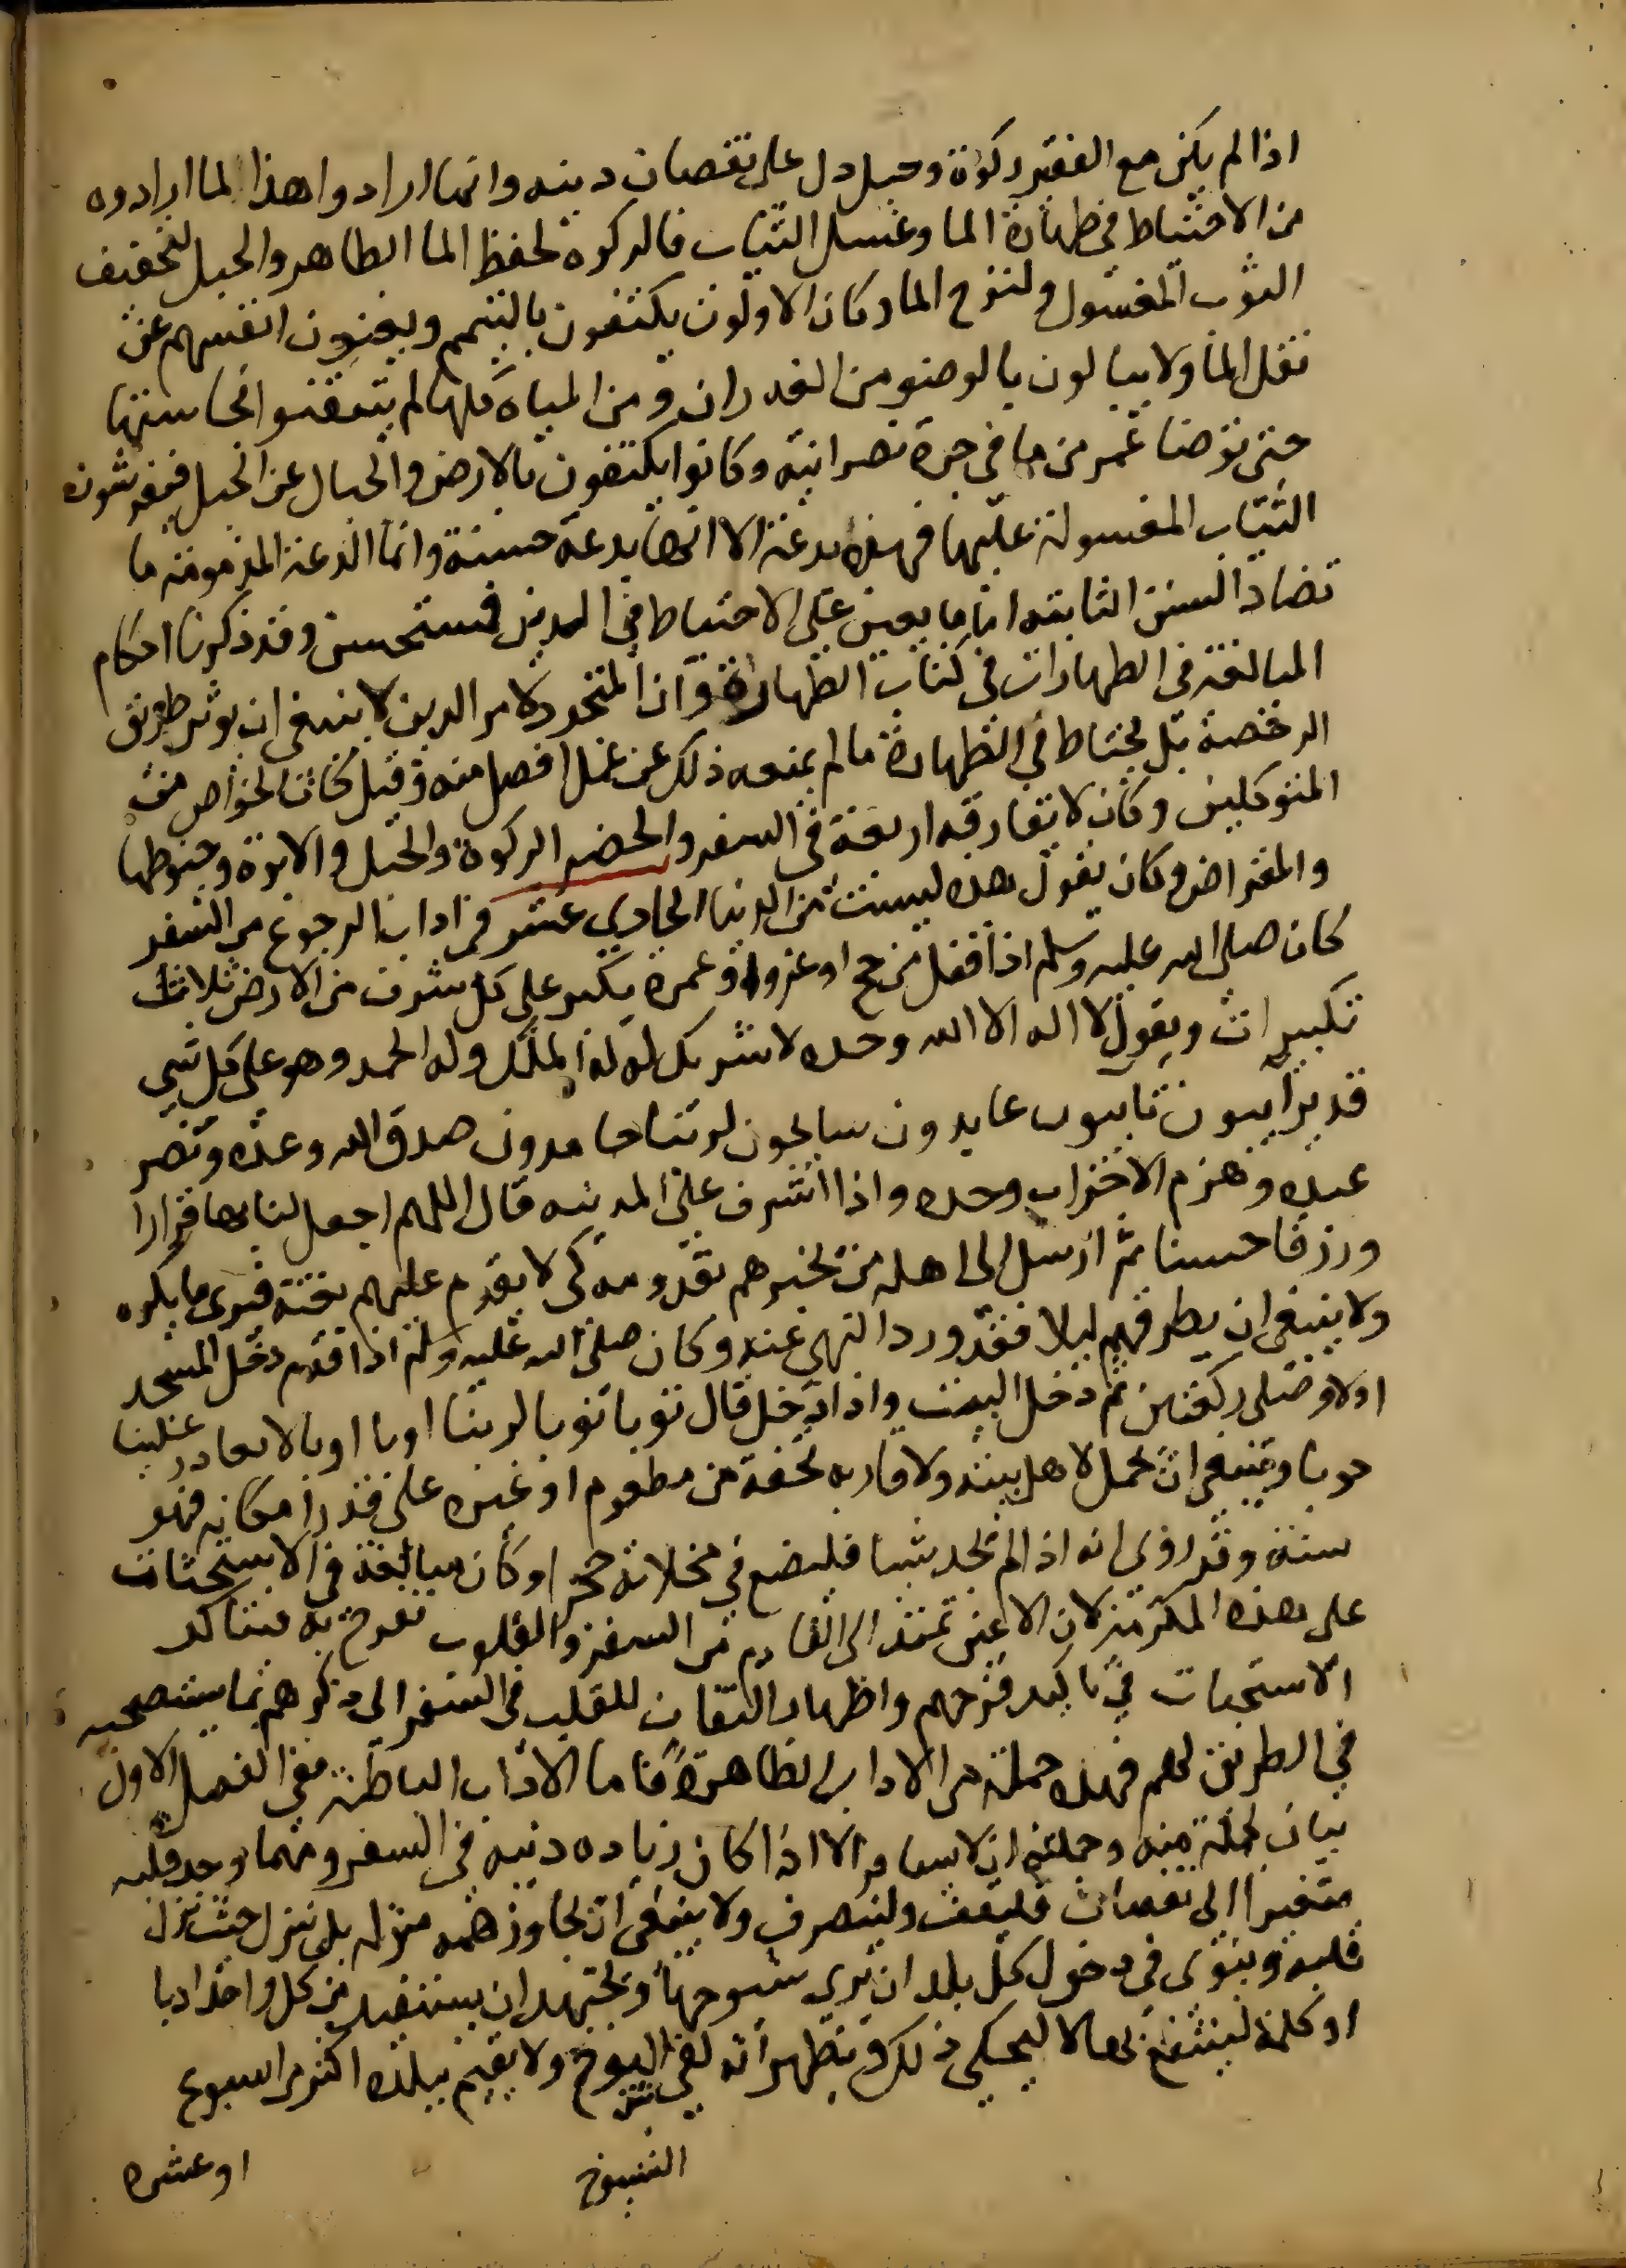 اذا لم يكن مع الفقير ركوة وحبل دل على نقصان دينه وانما ارادوا هذا لما ارادوه
من الاحتياط في طهارة الما وغسل الثياب فالركوة لحفظ الما الطاهر والحبل لتجفيف
الثوب المغسول ولنزح الما وكان الاولون يكتفون بالتيمم ويغنون انفسهم عن
نقل الما ولا يبالون بالوضو من الغدران ومن المياه كلها لم يتيقنوا نجاستها
حتى توضا عمر من ما في جرة نصرانية وكانوا يكتفون بالارض والجبال عن الحبل فيفرشون
الثياب المغسولة عليها فهذه بدعة الا انها بدعة حسنة وانما البدعة المذمومة ما
تضاد السنن الثابتة اما ما يعين على الاحتياط في الدين فمستحسن وقد ذكرنا احكام
المبالغة في الطهارات في كتاب الطهارة وان المتجرد لامر الدين لا ينبغي ان يوثر طريق
الرخصة بل يحتاط في الطهارة ما لم يمنعه ذلك عن عمل افضل منه وقيل كان الخواص من
المتوكلين وكان لا يفارقه اربعة في السفر والحضر الركوة والحبل والابرة وخيوطها
والمقراض وكان يقول هذه ليست من الدنيا الحادي عشر في اداب الرجوع من السفر
كان صلى الله عليه وسلم اذا قفل من حج او غزو او عمرة يكبر على كل شرف من الارض ثلاث
تكبيرات ويقول لا اله الا الله وحده لا شريك له له الملك وله الحمد وهو على كل شي
قدير ايبون تايبون عابدون سايحون لربنا حامدون صدق الله وعده ونصر
عبده وهزم الاحزاب وحده واذا اشرف على المدينه قال اللهم اجعل لنا بها قرارا
ورزقا حسنا ثم ارسل الى اهله من يخبرهم بقدومه كي لا يقدم عليهم بغتة فيرى ما يكره
ولا ينبغي ان يطرقهم ليلا فقد ورد النهي عنه وكان صلى الله عليه وسلم اذا قدم دخل المسجد
اولا وصلى ركعتين ثم دخل البيت واذا دخل قال توبا توبا لربنا اوبا اوبا لا يغادر علينا
حوبا وينبغي ان يحمل لاهل بيته ولاقاربه تحفة من مطعوم او غيره على قدر امكانه فهو
سنة وقد روى انه اذا لم يجد شيا فليضع في مخلاته حجرا وكان مبالغة في الاستحثاث
على هذه المكرمة لان الاعين تمتد الى القادم من السفر والقلوب تفرح به فيتاكد
الاستحباب في تاكيد فرحهم واظهار التفات للقلب في السفر الى ذكرهم بما يستصحبه
في الطريق لهم فهذه جملة من الاداب الظاهرة فاما الاداب الباطنة ففي الفصل الاول
بيان لجملة منه وجملته ان لا يسافر الا اذا كان زياده دينه في السفر ومهما وجد قلبه
متغيرا الى نقصان فليقف ولينصرف ولا ينبغي ان يجاوز همه منزله بل ينزل حيث ينزل
قلبه وينوى في دخول كل بلد ان يرى شيوخها ويجتهد ان يستفيد من كل واحد ادبا
او كلمة لينتفع بها لا ليحكي ذلك ويظهر انه لقي الشيوخ ولا يقيم ببلده اكثر من اسبوع
الشيوخ
او عشره